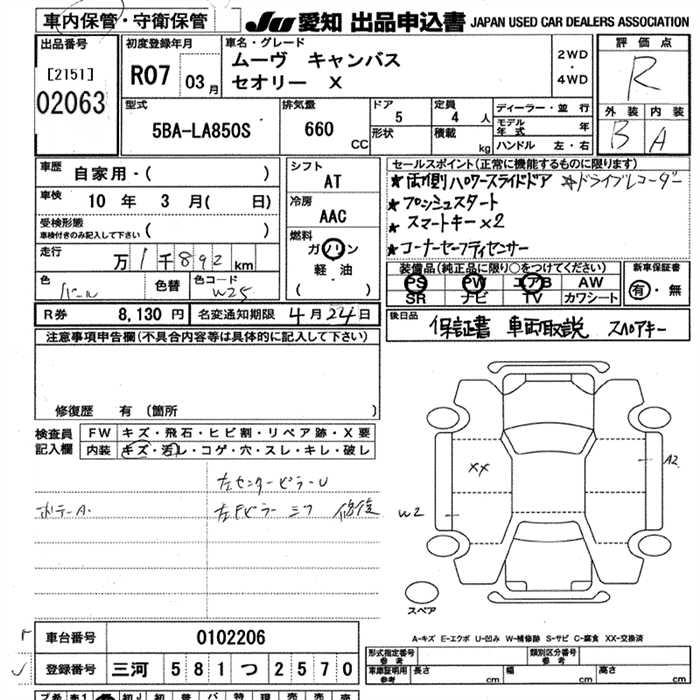 車内保管・守衛保管
JU 愛知 出品申込書 JAPAN USED CAR DEALERS ASSOCIATION
出品番号
[2151]
02063
初度登録年月
R07 03月
車名・グレード
ムーヴ キャンバス
セオリー X
2WD
・
4WD
評価点
R
外装 内装
B A
型式
5BA-LA850S
排気量
660 CC
ドア
5
形状
定員
4人
積載
kg
ディーラー・並行
モデル年式 年
ハンドル 左・右
車歴
自家用・( )
車検
10年 3月( 日)
受検形態
車検付きのみ記入して下さい ( )
走行
万 1千892km
色
パール
色替
色コード
W25
シフト
AT
冷房
AAC
燃料
ガソリン
軽・油
( )
セールスポイント(正常に機能するものに限ります)
★両側パワースライドドア ☆ドライブレコーダー
★プッシュスタート
★スマートキー×2
★コーナーセーフティセンサー
装備品(純正品に限り○をつけてください)
PS PW エアB AW
SR ナビ TV カワシート
新車保証書
有・無
R券 8,130円 名変通知期限 4月24日
後日品
保証書 車両取説 スペアキー
注意事項申告欄(不具合内容等は具体的に記入して下さい)
修復歴 有(箇所 )
検査員
記入欄
FW キズ・飛石・ヒビ割・リペア跡・X要
内装 キズ・汚レ・コゲ・穴・スレ・キレ・破レ
左センターピラーU
ボデーA.
左Fピラー
修復
XX
A2
W2
スペア
A-キズ E-エクボ U-凹み W-補修跡 S-サビ C-腐食 XX-交換済
車台番号 0102206
登録番号 三河 581つ2570
形式指定番号
参考
類別区分番号
参考
車庫証明用
参考
長さ cm 幅 cm 高さ cm